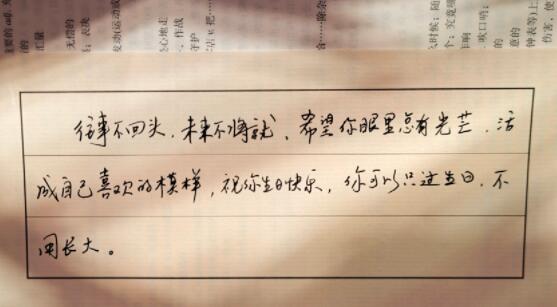 往事不回头，未来不将就，希望你眼里总有光芒，活
成自己喜欢的模样，祝你生日快乐，你可以只过生日，不
用长大。